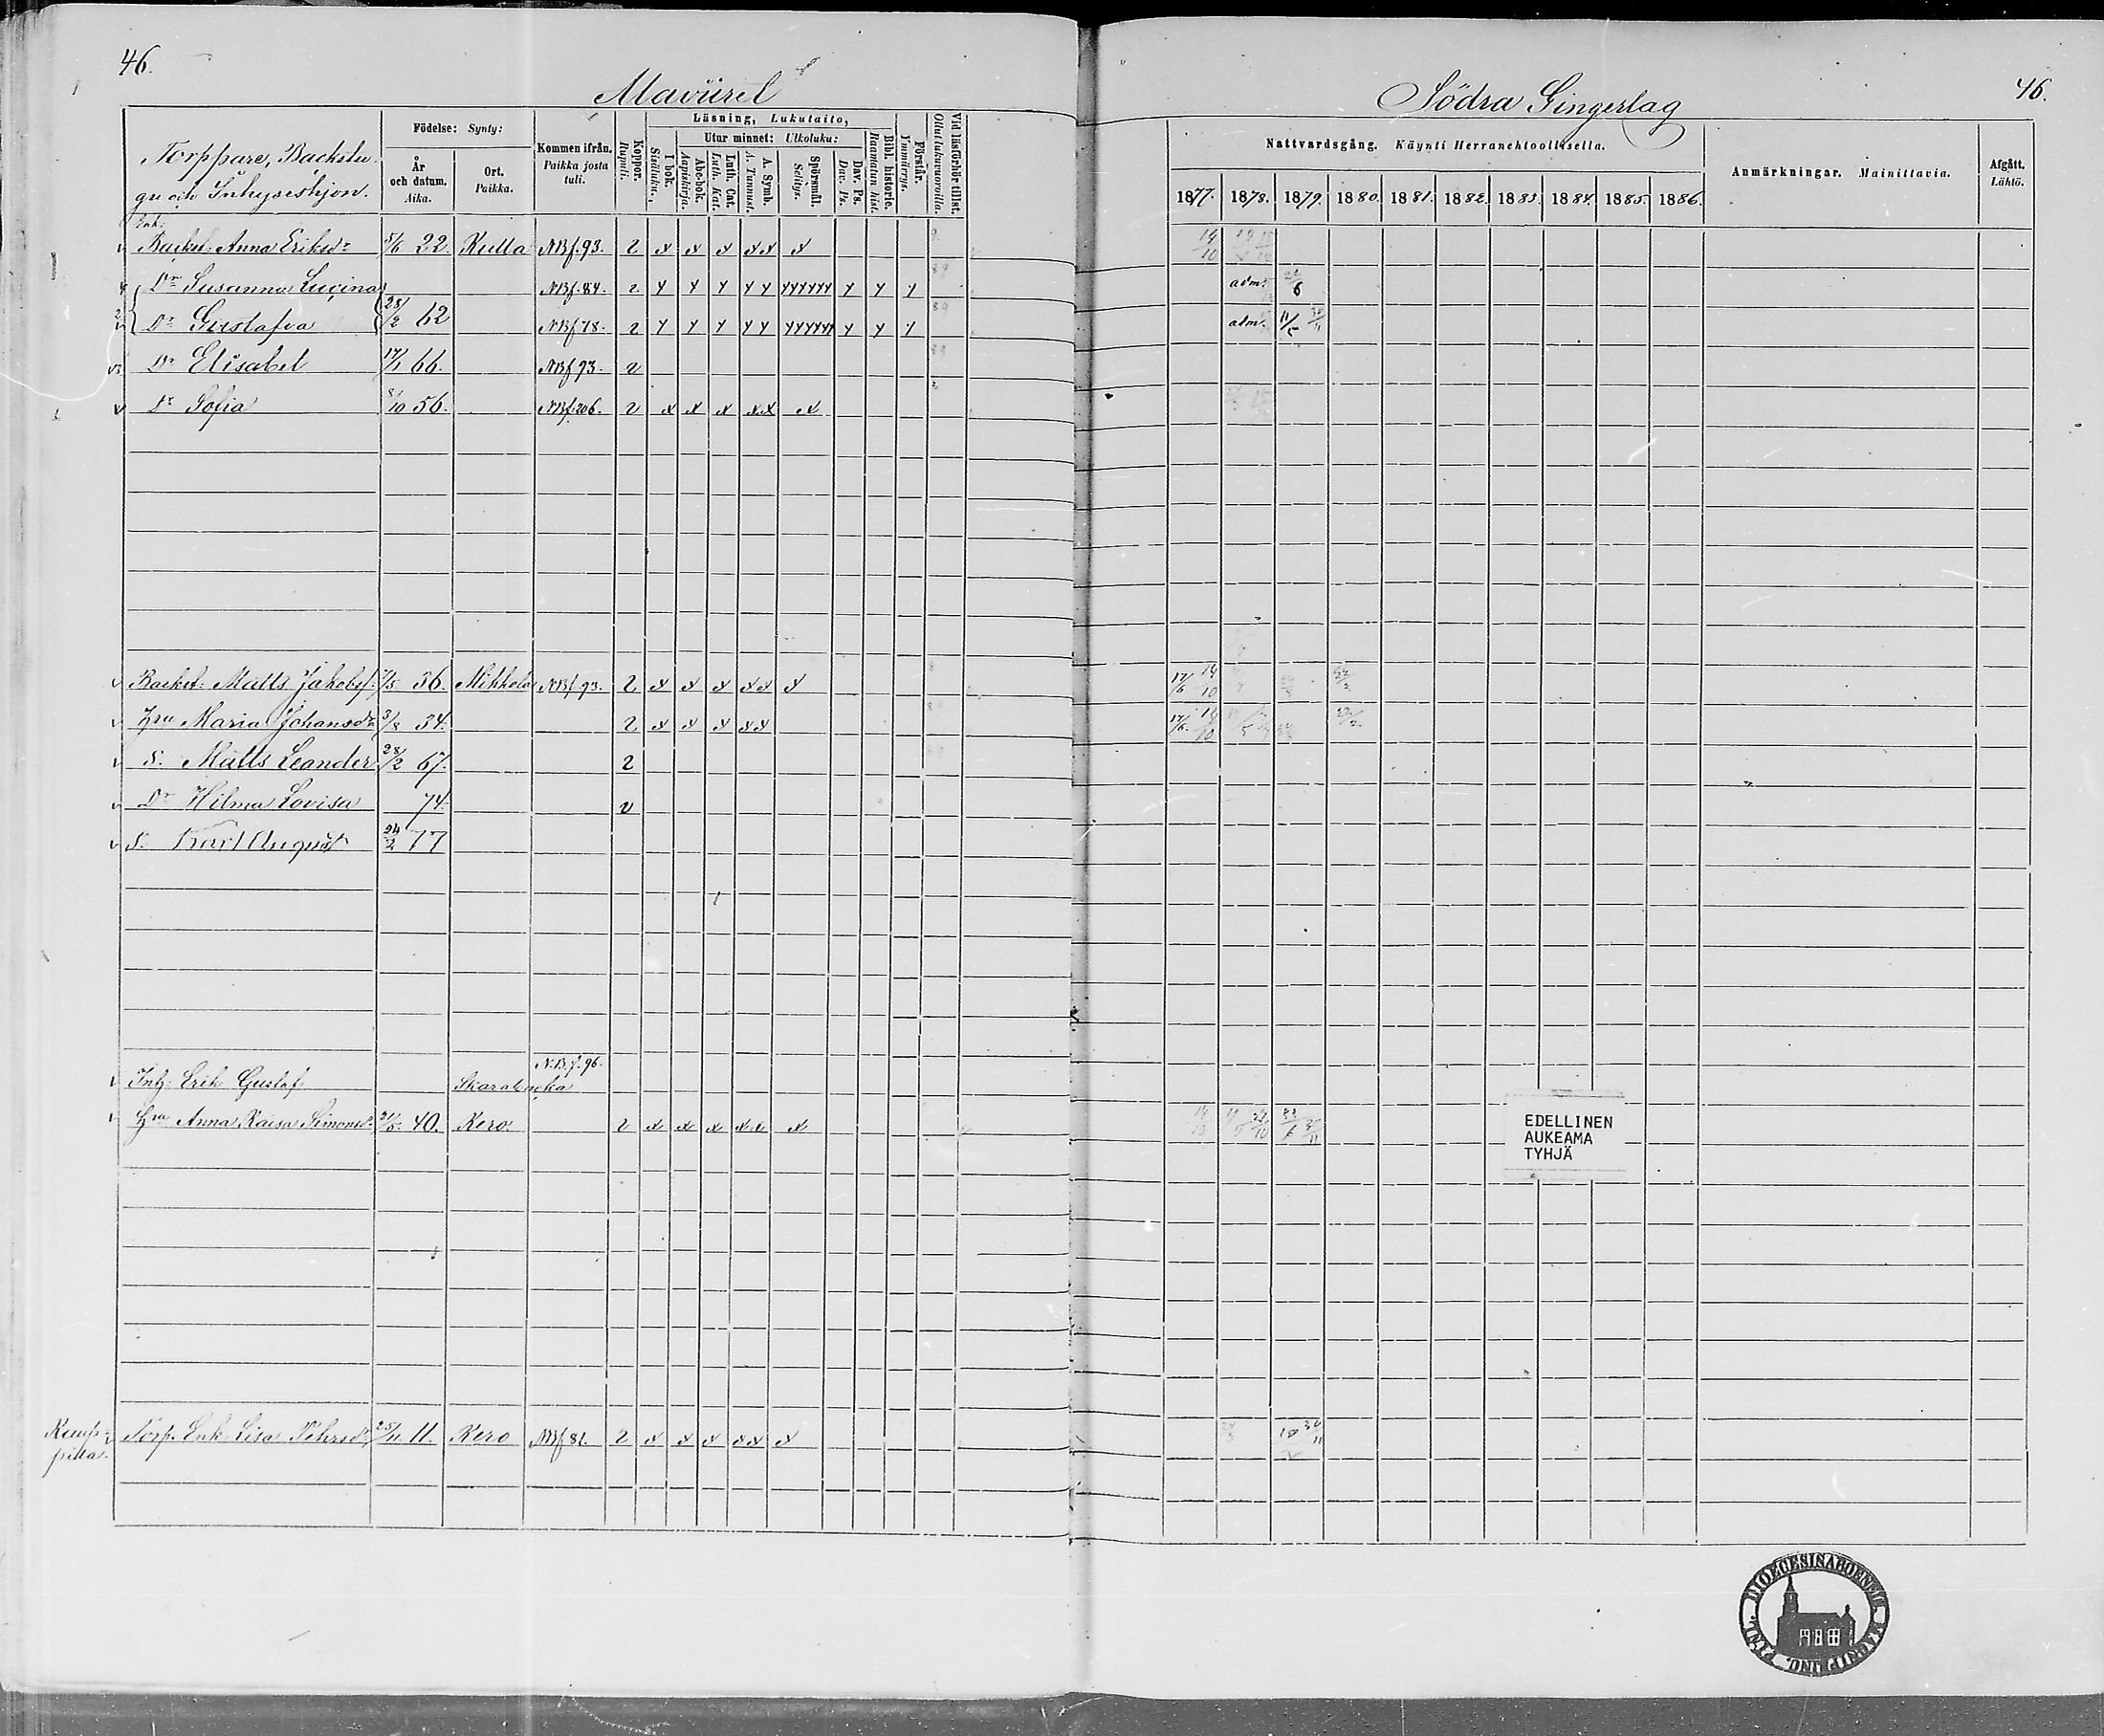 46.
Södra Singerlag
46.
Torppare, Backstu
gu och Inhyseshjon.
Födelse: Synty:
År
och datum.
Aika.
Ort.
Paikka.
Kommen ifrån.
Paikka josta
tuli.
Koppor.
Rupuli.
Läsning, Lukutaito,
I bok.
Sisäluku.
Utur minnet: Ulkoluku:
Abc-bok.
Aapiskirja.
Luth. Cat.
Luth. Kat.
A. Symb.
A. Tunnust.
Spörsmål.
Selitys.
Dav. Ps.
Dav. Ps.
Bibl. historie.
Raamatun hist.
Förstår.
Ymmärrys.
Vid läsförhör tillst.
Ollut lukuvuoroilla.
Nattvardsgång. Käynti Herranehtoollisella.
1877. 1878. 1879. 1880. 1881. 1882. 1883. 1884. 1885. 1886.
Anmärkningar. Mainittavia.
Afgått.
Lähtö.
Enk.
Backst. Anna Eriksdr 5/6 22. NBf. 93. 2 x x x xx x 14/10
Dr Susanna NBf. 84. 2 y y y yy yyyyyy y y y adm.
Dr Gustafva 28/2 62 NBf 78. 2 y y y yy yyyyyy y y y adm. 11/5
Dr Elisabet 17/1 66. NBf 93. 2
Dr Sofia 8/10 56. NBf. 206. 2 x x x xx x
Backst. Matts Jakobs. 7/5 36. Mikkola NBf 93. 2 x x x xx x 17/6 14/10
Hru Maria Johansdr 3/8 34. 2 x x x xx 17/6. 14/10
S. Matts Leander 28/2 67. 2
Dr Hilma Lovisa 74. 2
S. Karl August 24/2 77
NBf. 96.
Inh. Erik Gustaf
Hru Anna Kaisa Simonsd. 21/5. 40. Kero. 2 x x x xx x
EDELLINEN
AUKEAMA
TYHJÄ
Torp. Enk. Lisa 25/11. 11. Kero NBf 81. 2 x x x xx x 30/11